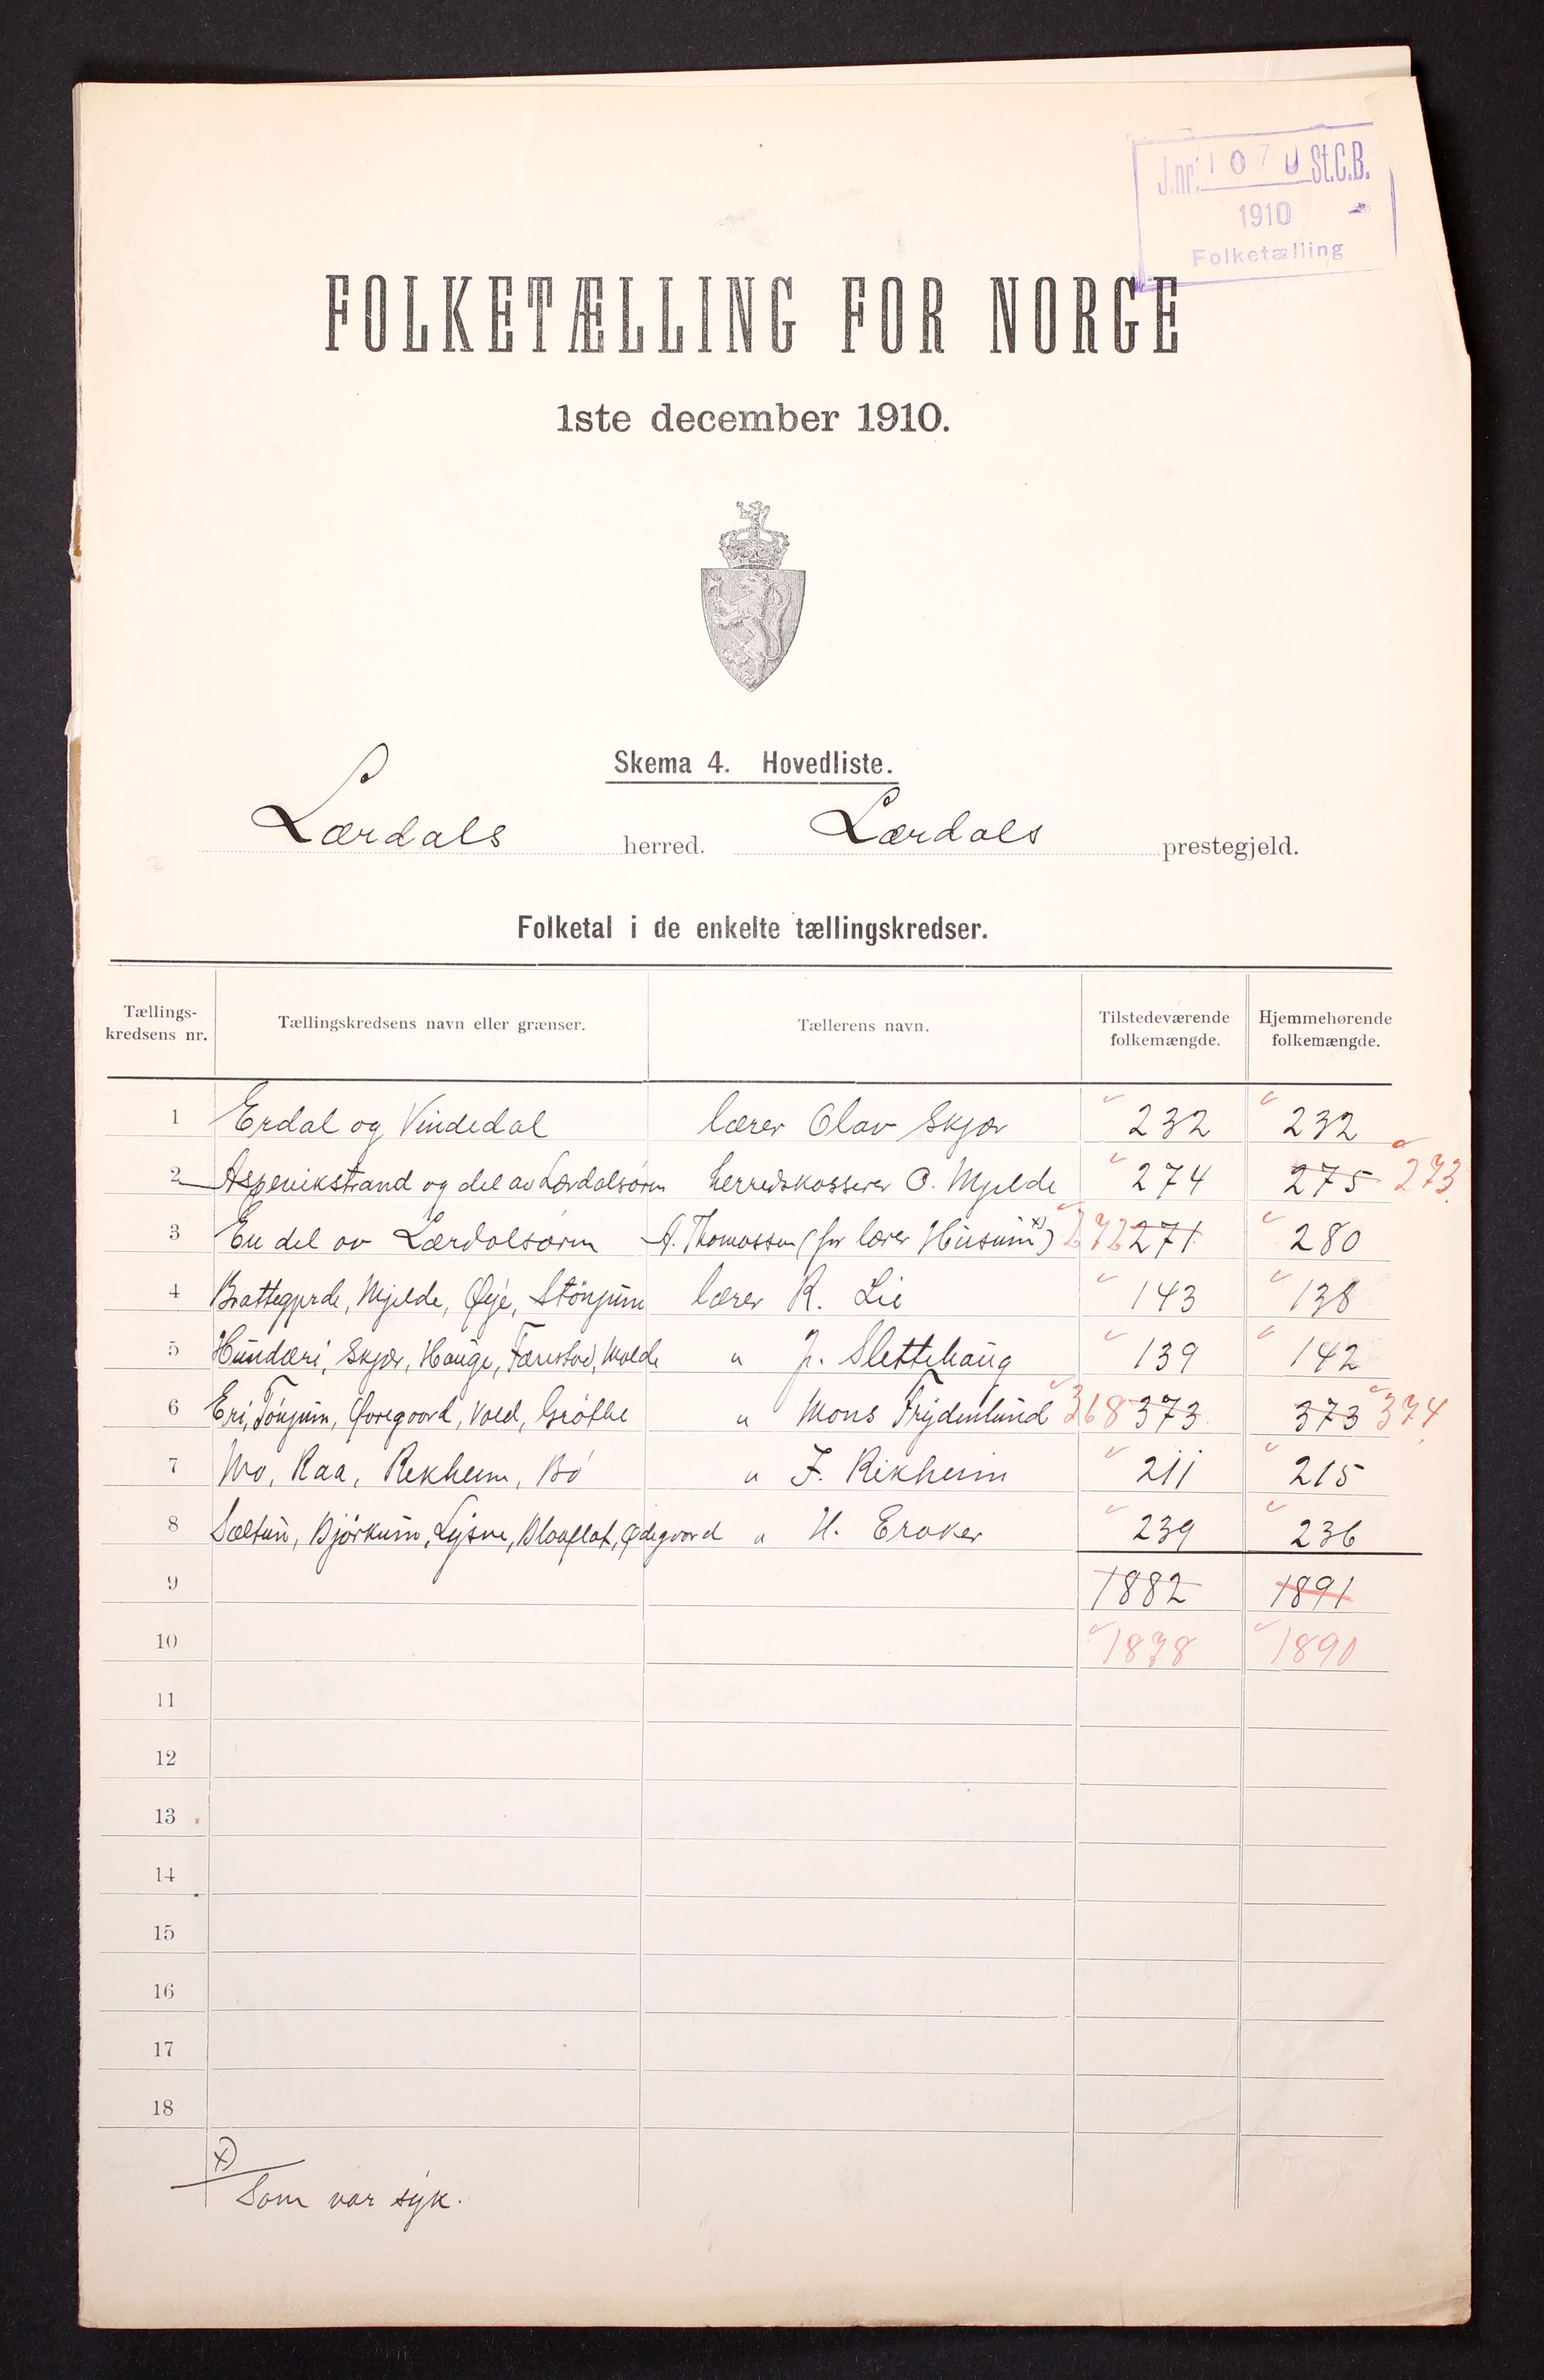 J.nr. 1070 St.C.B.
1910
Folketælling
FOLKETÆLLING FOR NORGE
1ste december 1910.
Skema 4. Hovedliste.
Lærdals herred. Lærdals prestegjeld.
Folketal i de enkelte tællingskredser.
Tællings-kredsens nr. Tællingskredsens navn eller grænser. Tællerens navn. Tilstedeværende folkemængde. Hjemmehørende folkemængde.
1 Erdal og Vindedal lærer Olav Skjær 232 232
2 Aspevikstrand og del av Lærdalsøren herredskasserer O. Mjelde 274 275 273
3 En del av Lærdalsøren A. Thomassen (for lærer Husum x)) 272 271 280
4 Brattegjerde, Mjelde, Øije, Stönjum lærer R. Lie 143 138
5 Hunderi, Skjær, Hauge, Færestad, Molde " J. Slettehaug 139 142
6 Eri, Tönjum, Øvregaard, Vold, Gröthe " Mons Frydenlund 368 373 373 374
7 Mo, Raa, Rikheim, Bö " J. Rikheim 211 215
8 Sæltun, Björkum, Lysne, Blaaflat, Ødegaard " H. Eraker 239 236
9 1882 1891
10 1878 1890
11
12
13
14
15
16
17
18
x)
Som var syk.